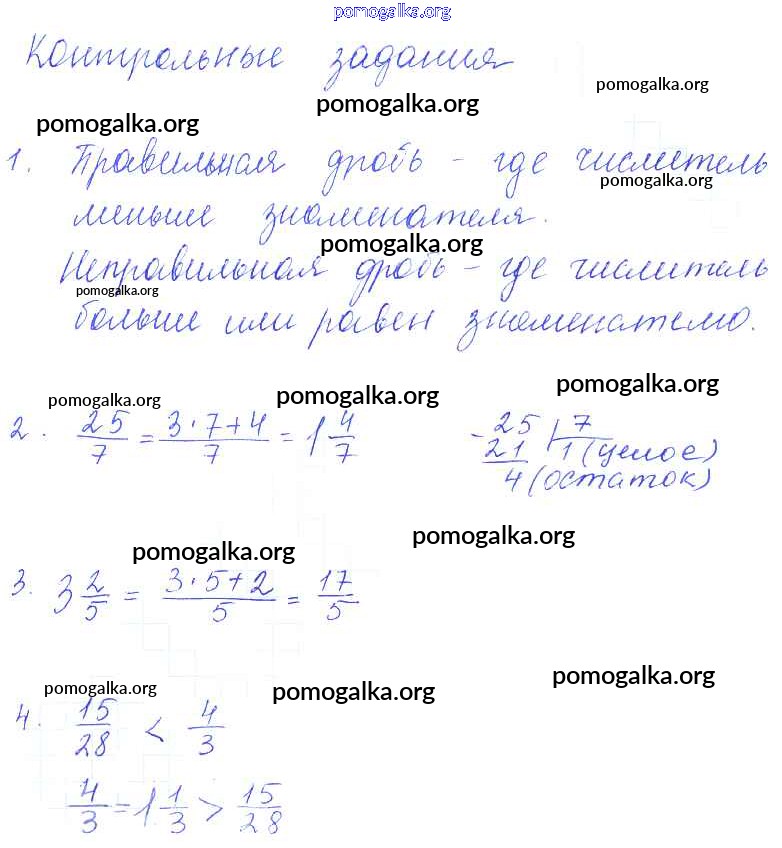 pomogalka.org
Контрольные задания
pomogalka.org
pomogalka.org
pomogalka.org
1. Правильная дробь – где числитель
pomogalka.org
меньше знаменателя.
pomogalka.org
Неправильная дробь – где числитель
pomogalka.org
больше или равен знаменателю.
pomogalka.org
pomogalka.org
pomogalka.org
2. 25/7 = (3·7+4)/7 = 1 4/7
- 25 | 7
21 1 (целое)
4 (остаток)
pomogalka.org
pomogalka.org
3. 3 2/5 = (3·5+2)/5 = 17/5
pomogalka.org
pomogalka.org
pomogalka.org
4. 15/28 < 4/3
4/3 = 1 1/3 > 15/28